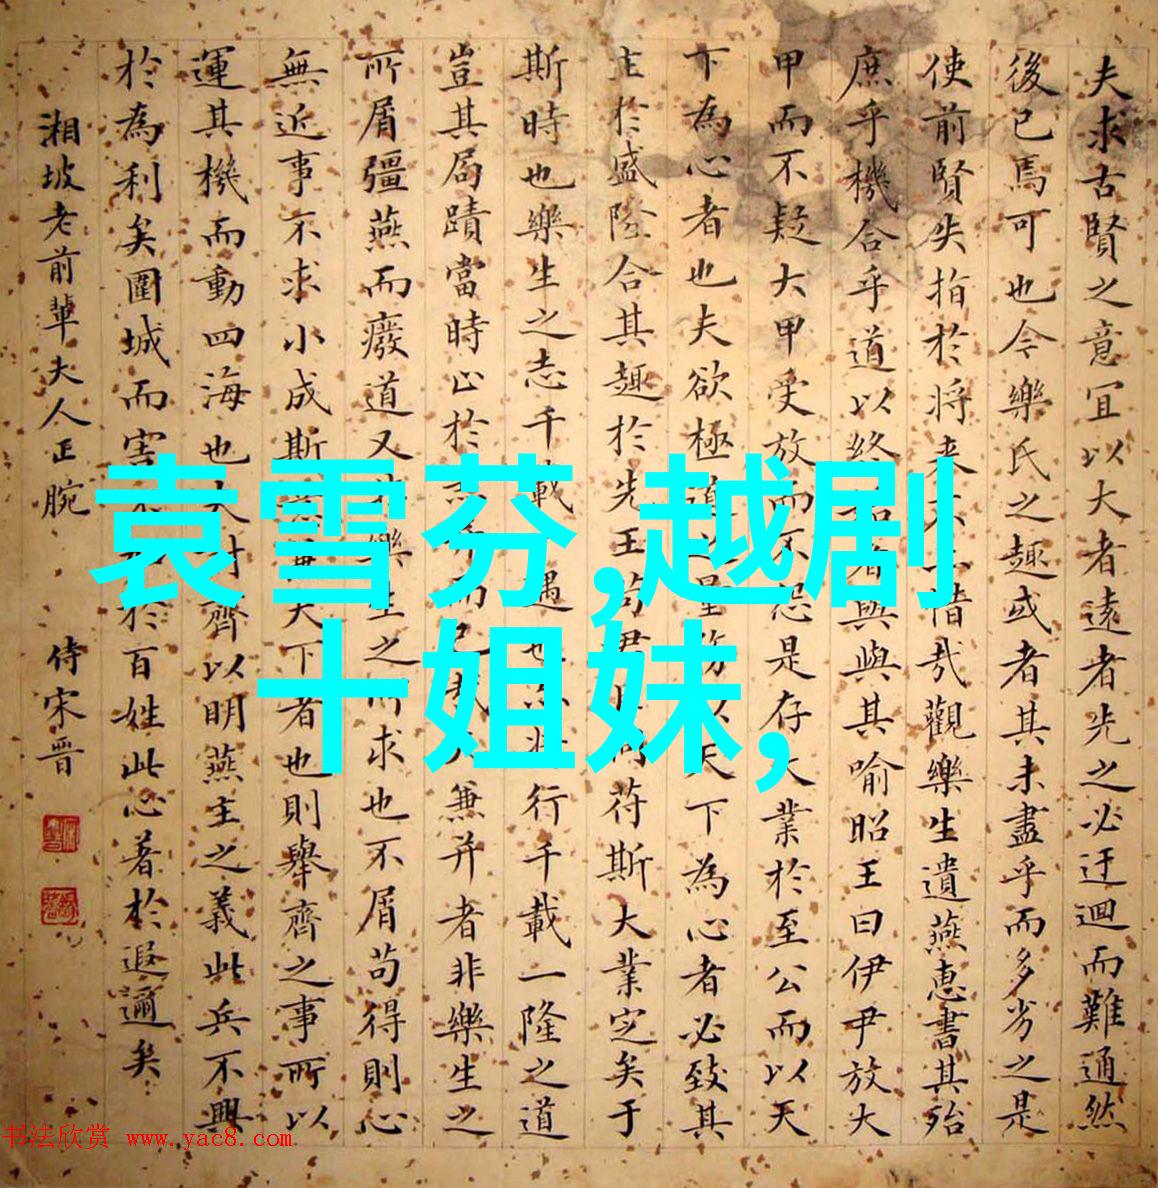 夫求古賢之意宜以大者遠者先之必迂迴而難通然
後已焉可也今樂氏之趣或者其未盡乎而多劣之是
使前賢失指於將來不亦惜哉觀樂生遺燕惠書其殆
庶乎機合乎道以終始者與與其喻昭王曰伊尹放大
甲而不疑大甲受放而不怨是存大業於至公而以天
下為心者也夫欲極道之量務以天下為心者必致其
主於盛隆合其趣於先王苟君臣同符斯大業定矣于
斯時也樂生之志千載一遇也亦將行千載一隆之道
豈其局蹟當時止於兼并而已哉夫兼并者非樂生之
所屑彊燕而廢道又非樂生之所求也不屑苟得則心
無近事不求小成斯意兼天下者也則舉齊之事所以
運其機而動四海也夫討齊以明燕主之義此兵不興
於為利矣圍城而害不加於百姓此心著於遐邇矣
湘坡老前輩夫人正腕 侍宋晋
袁雪芬,越剧
十姐妹,
书法欣赏 www.yac8.com